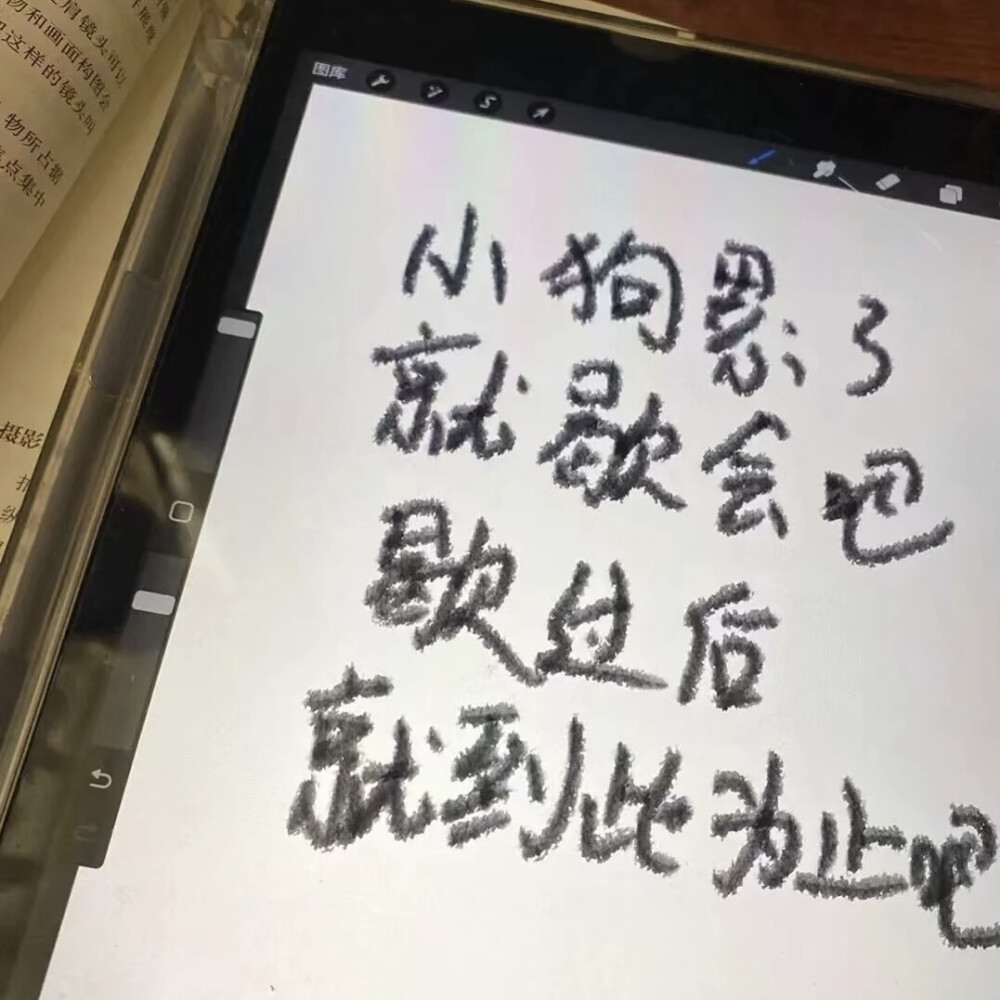 肩镜头可以
物和画面构图会
这样的镜头叫
物所占据
点集中
摄影
图库
小狗累了
就歇会吧
歇过后
就到此为止吧